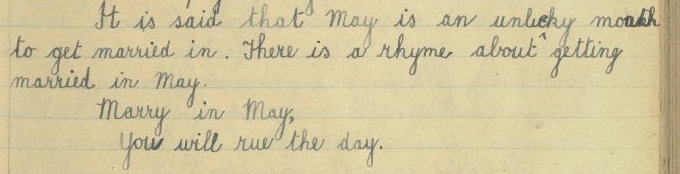 It is said that May is an unlucky month
to get married in. There is a rhyme about getting
married in May.
Marry in May,
You will rue the day.